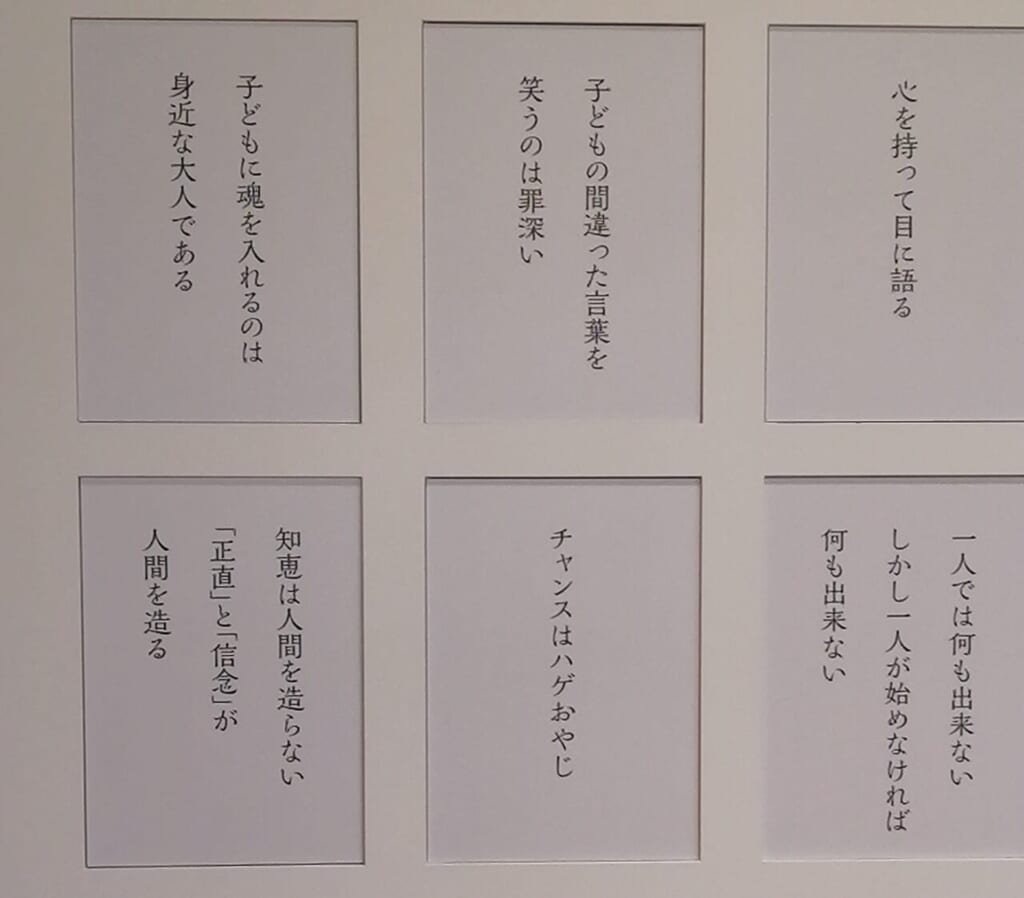 心を持って目に語る
子どもの間違った言葉を
笑うのは罪深い
子どもに魂を入れるのは
身近な大人である
一人では何も出来ない
しかし一人が始めなければ
何も出来ない
チャンスはハゲおやじ
知恵は人間を造らない
「正直」と「信念」が
人間を造る